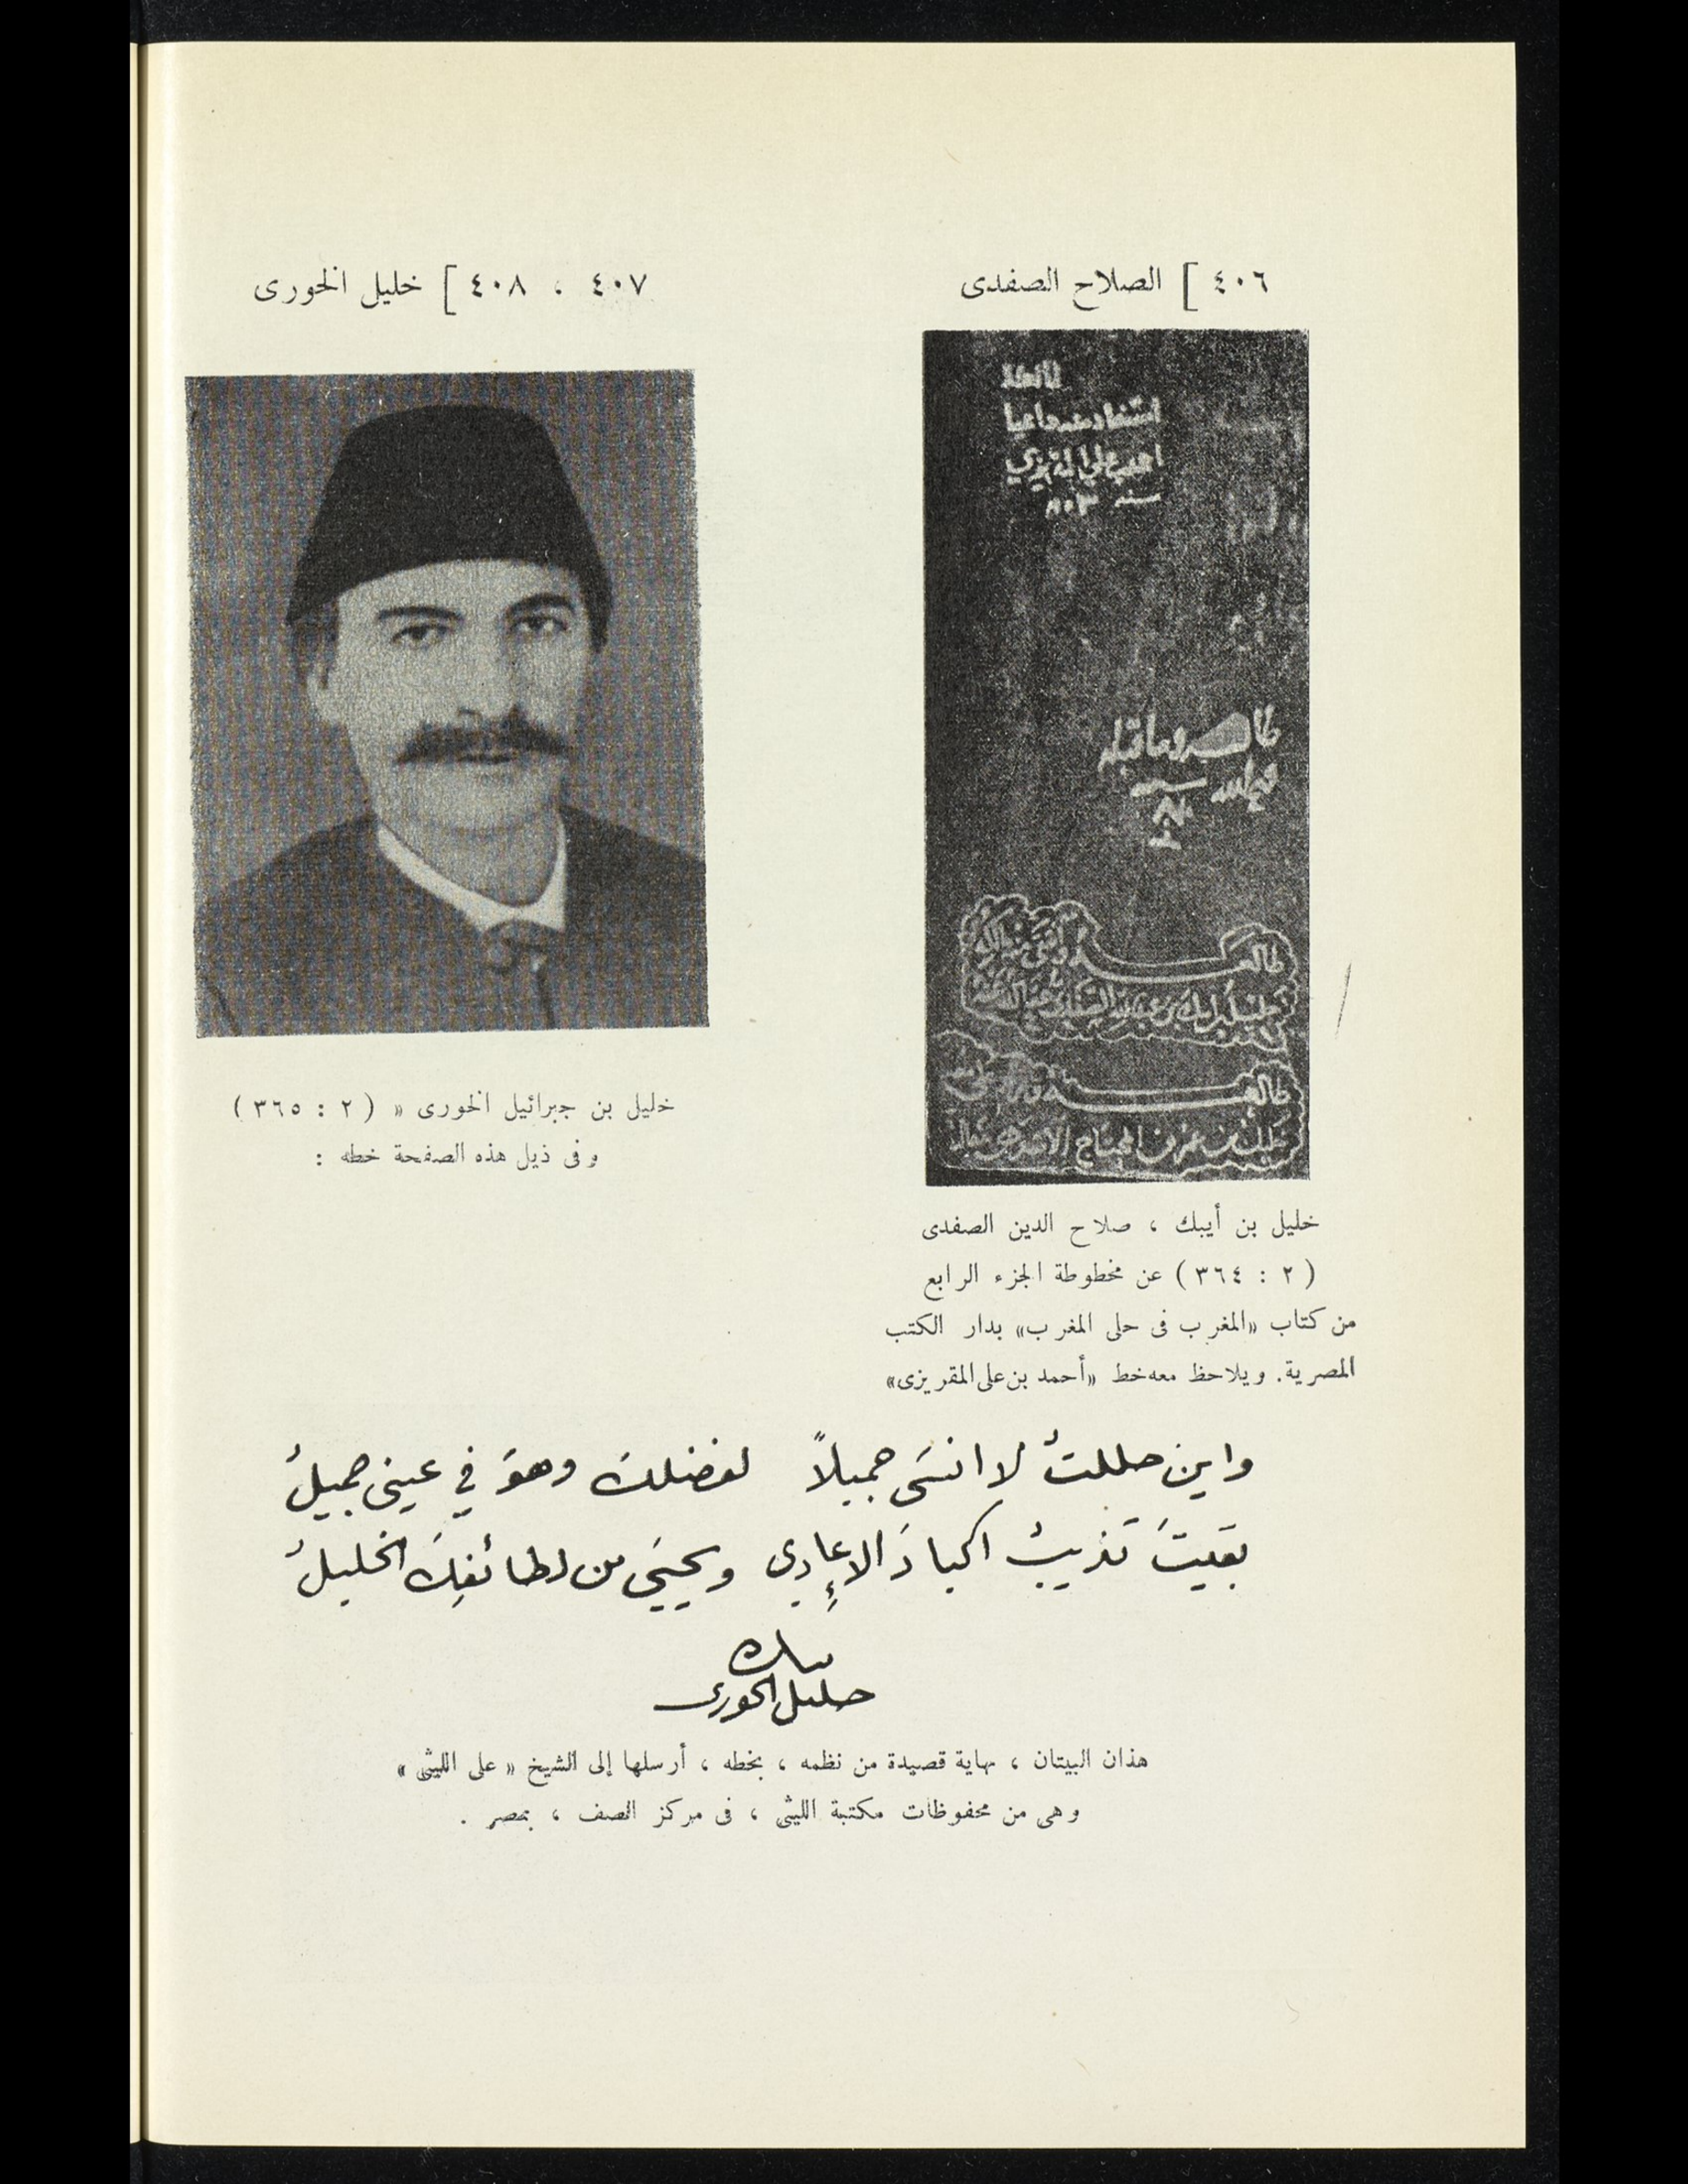 ٤٠٦ ] الصلاح الصفدى
استفاد منه داعيا
احمد بن علي المقريزي
سنة ٨٠٣
طالعه
طالعه
خليل بن أيبك ، صلاح الدين الصفدى
( ٢ : ٣٦٤ ) عن مخطوطة الجزء الرابع
من كتاب «المغرب فى حلى المغرب» بدار الكتب
المصرية. ويلاحظ معه خط «أحمد بن على المقريزى»
٤٠٧ ، ٤٠٨ ] خليل الخورى
خليل بن جبرائيل الخورى « ( ٢ : ٣٦٥ )
وفى ذيل هذه الصفحة خطه :
واين حللتُ لا انسَى جميلاً لفضلك وهوَ في عيني جميلُ
بقيتَ تذيبُ اكبادَ الاعادِي ويحيَى من لطائفِكَ الخليلُ
خليل الخورى
هذان البيتان ، نهاية قصيدة من نظمه ، بخطه ، أرسلها إلى الشيخ « على الليثى »
وهى من محفوظات مكتبة الليثى ، فى مركز الصف ، بمصر .